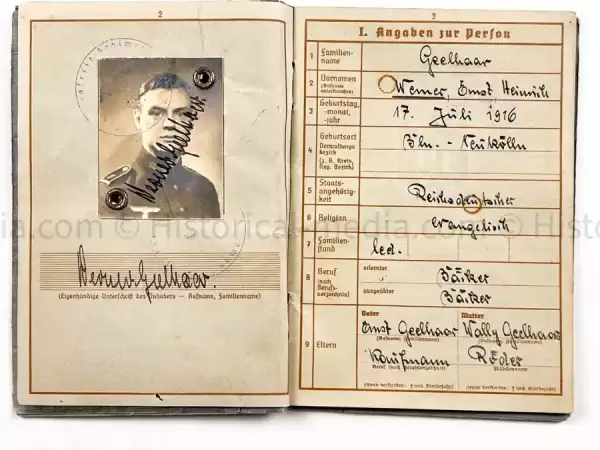 2
Werner Geelhaar
Werner Geelhaar.
(Eigenhändige Unterschrift des Inhabers — Rufname, Familienname)
3
I. Angaben zur Person
1 Familien-
name
Geelhaar
2 Vornamen
(Rufname
unterstreichen)
Werner, Ernst Heinrich
3 Geburtstag,
-monat,
-jahr
17. Juli 1916
4 Geburtsort
Verwaltungs-
bezirk
(z. B. Kreis,
Reg. Bezirk)
Bln. - Neukölln
5 Staats-
angehörig-
keit
Reichsdeutscher
6 Religion
evangelisch
7 Familien-
stand
led.
8 Beruf
(nach
Berufs-
verzeichnis)
erlernter
Bäcker
ausgeübter
Bäcker
9 Eltern
Vater Mutter
Ernst Geelhaar Wally Geelhaar
(Rufname, Familienname) (Rufname, Familienname)
Kaufmann Röder
Beruf (nach Berufsverzeichnis) Mädchenname
(wenn verstorben: † und Sterbejahr) (wenn verstorben: † und Sterbejahr)
© Historical-media.com © Historical-media.com ©